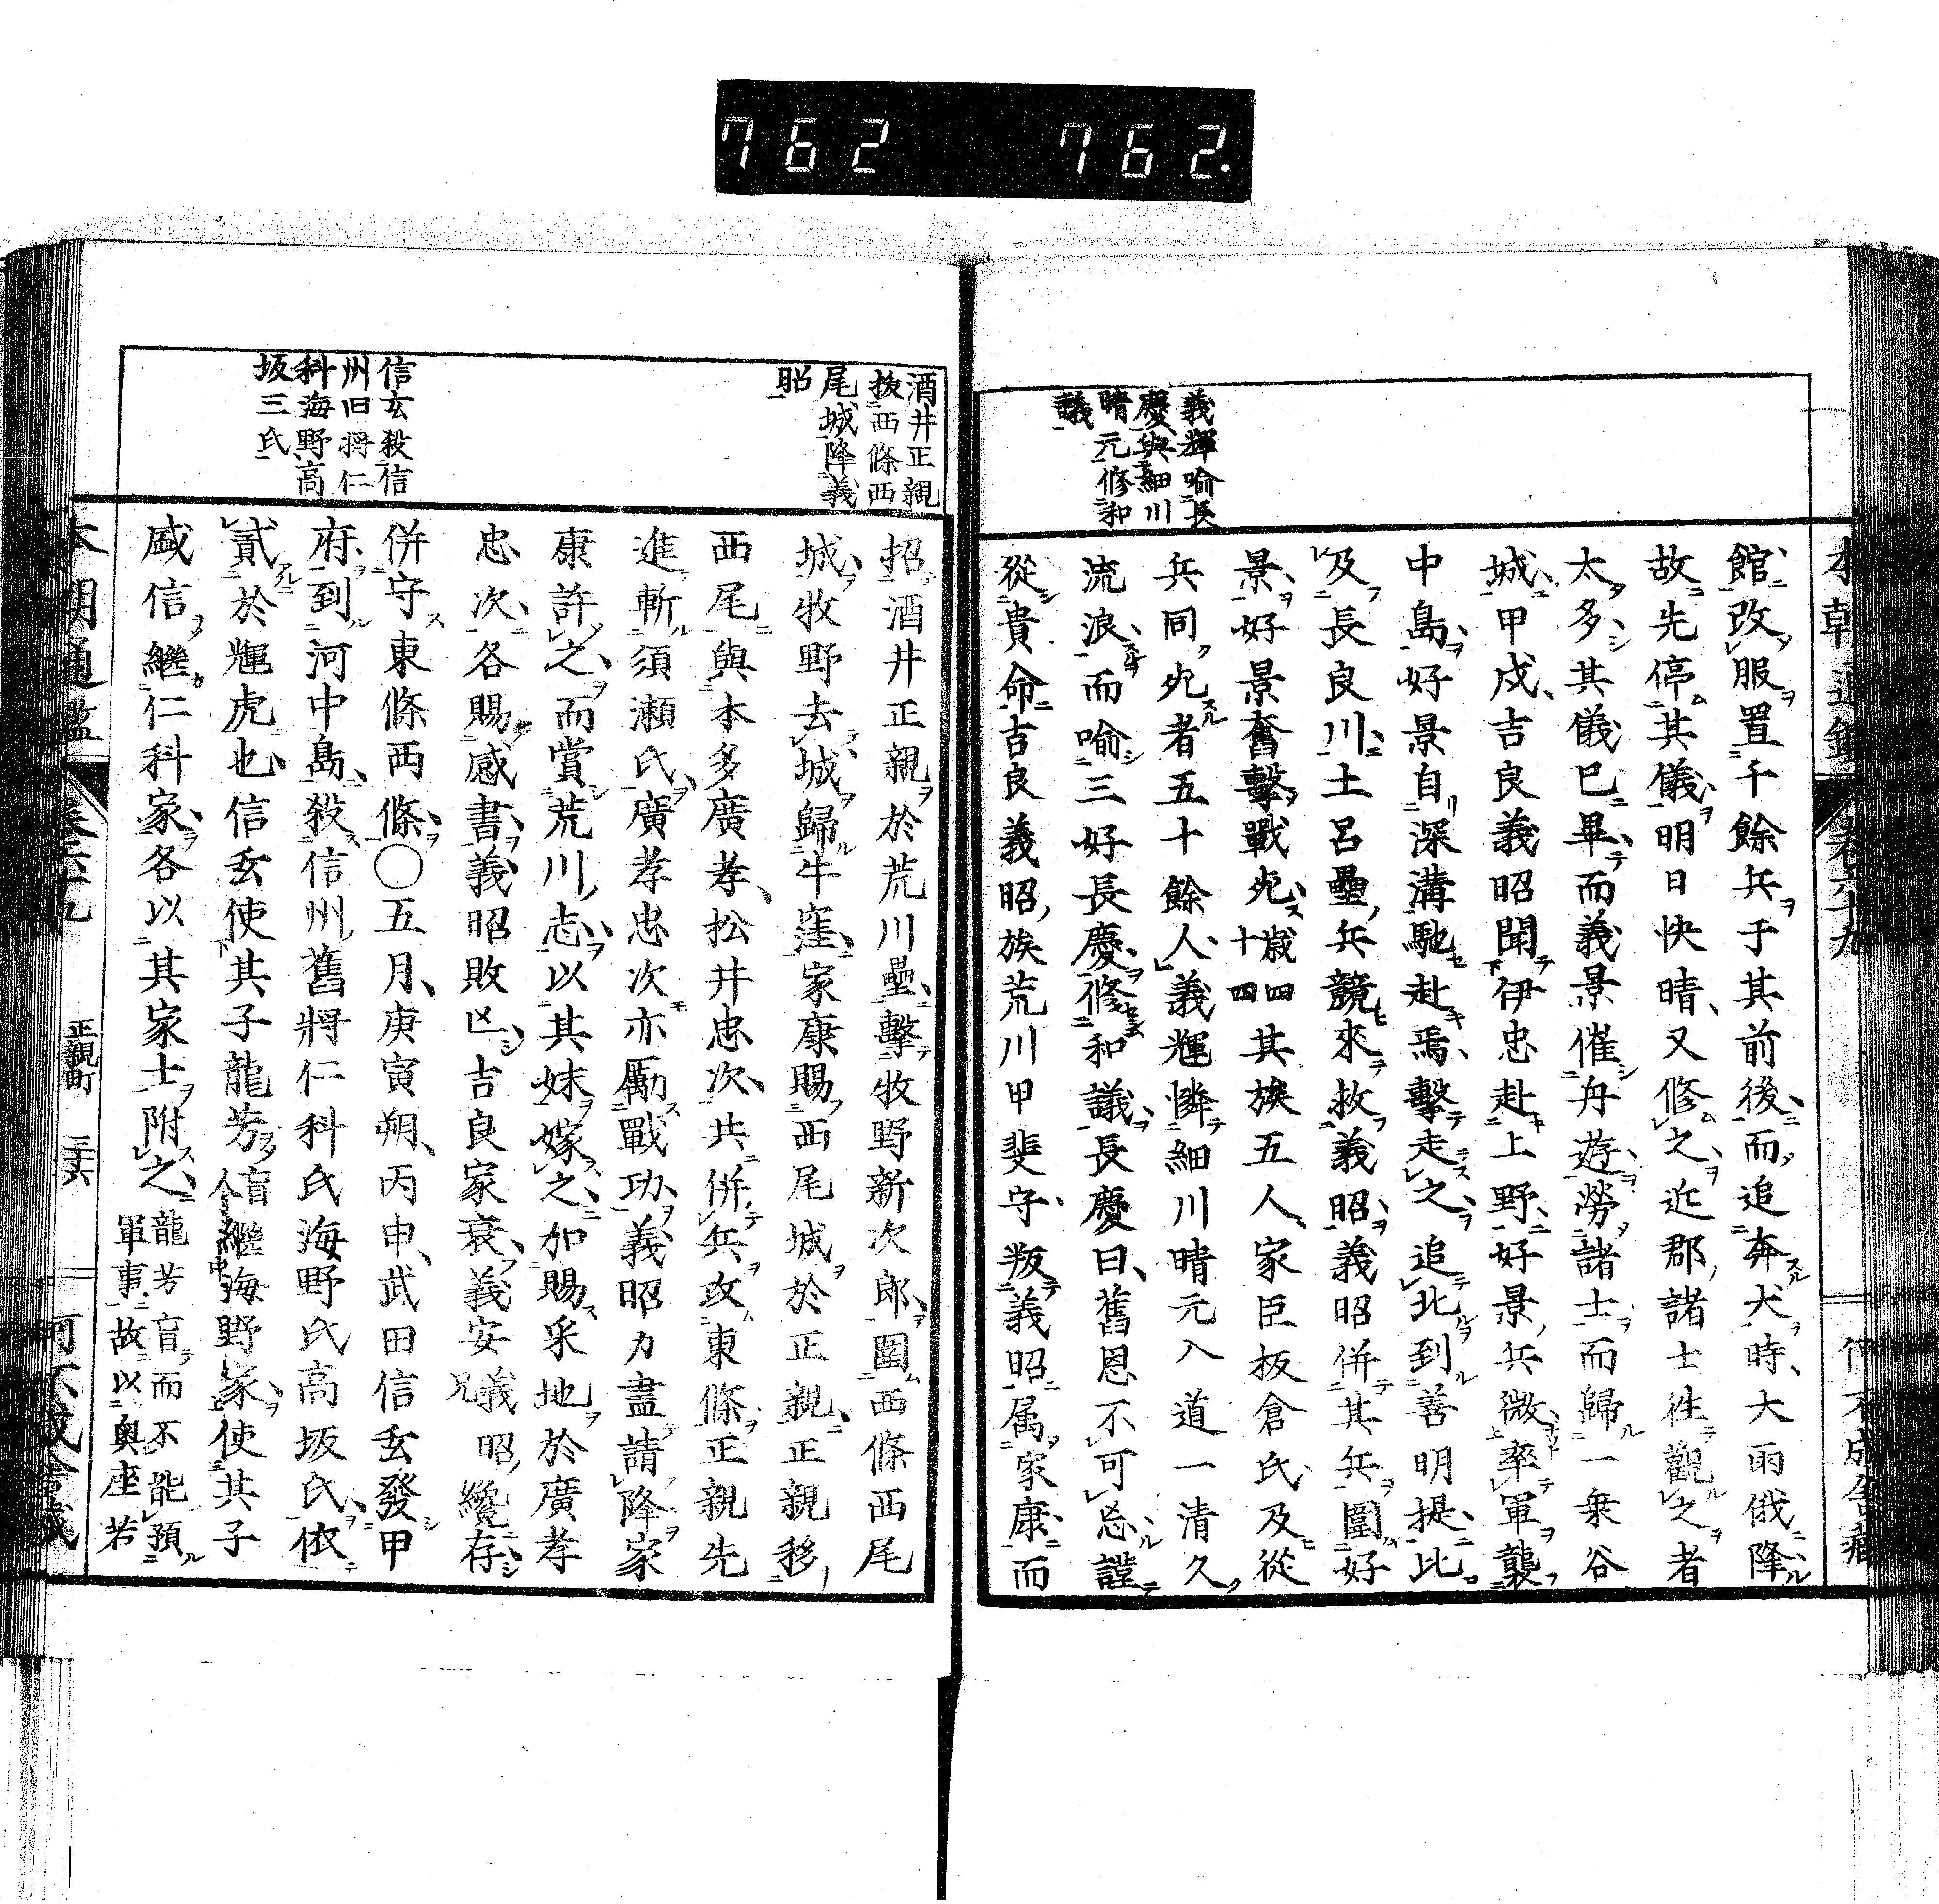 762 762.
本朝通鑑 卷六十九
義輝喩長
慶與細川
晴元修和
議
館改服置千餘兵于其前後而追奔犬時大雨俄降
故先停其儀明日快晴又修之近郡諸士徃觀之者
太多其儀已畢而義景催舟遊勞諸士而歸一乗谷
城甲戌吉良義昭聞伊忠赴上野好景兵微率軍襲
中島好景自深溝馳赴焉擊走之追北到善明提比
及長良川土呂壘兵競來救義昭義昭併其兵圍好
景好景奮擊戰死歲四十四其族五人家臣板倉氏及從
兵同死者五十餘人義輝憐細川晴元入道一清久
流浪而喻三好長慶修和議長慶曰舊恩不可忘謹
從貴命吉良義昭族荒川甲斐守叛義昭属家康而
酒井正親
拔西條西
尾城降義
昭
招酒井正親於荒川壘擊牧野新次郎圍西條西尾
城牧野去城歸牛窪家康賜西尾城於正親正親移
西尾與本多廣孝松井忠次共併兵攻東條正親先
進斬須瀬氏廣孝忠次亦勵戰功義昭力盡請降家
康許之而賞荒川志以其妹嫁之加賜采地於廣孝
忠次各賜感書義昭敗亡吉良家衰義安義昭兄纔存
信玄殺信
州旧将仁
科海野高
坂三氏
併守東條西條○五月庚寅朔丙申武田信玄發甲
府到河中島殺信州舊將仁科氏海野氏高坂氏依
貳於輝虎也信玄使其子龍芳盲人繼海野家使其子
盛信繼仁科家各以其家士附之龍芳盲而不能預軍事故以奥座若
本朝通鑑 卷六十九 正親町 三十六